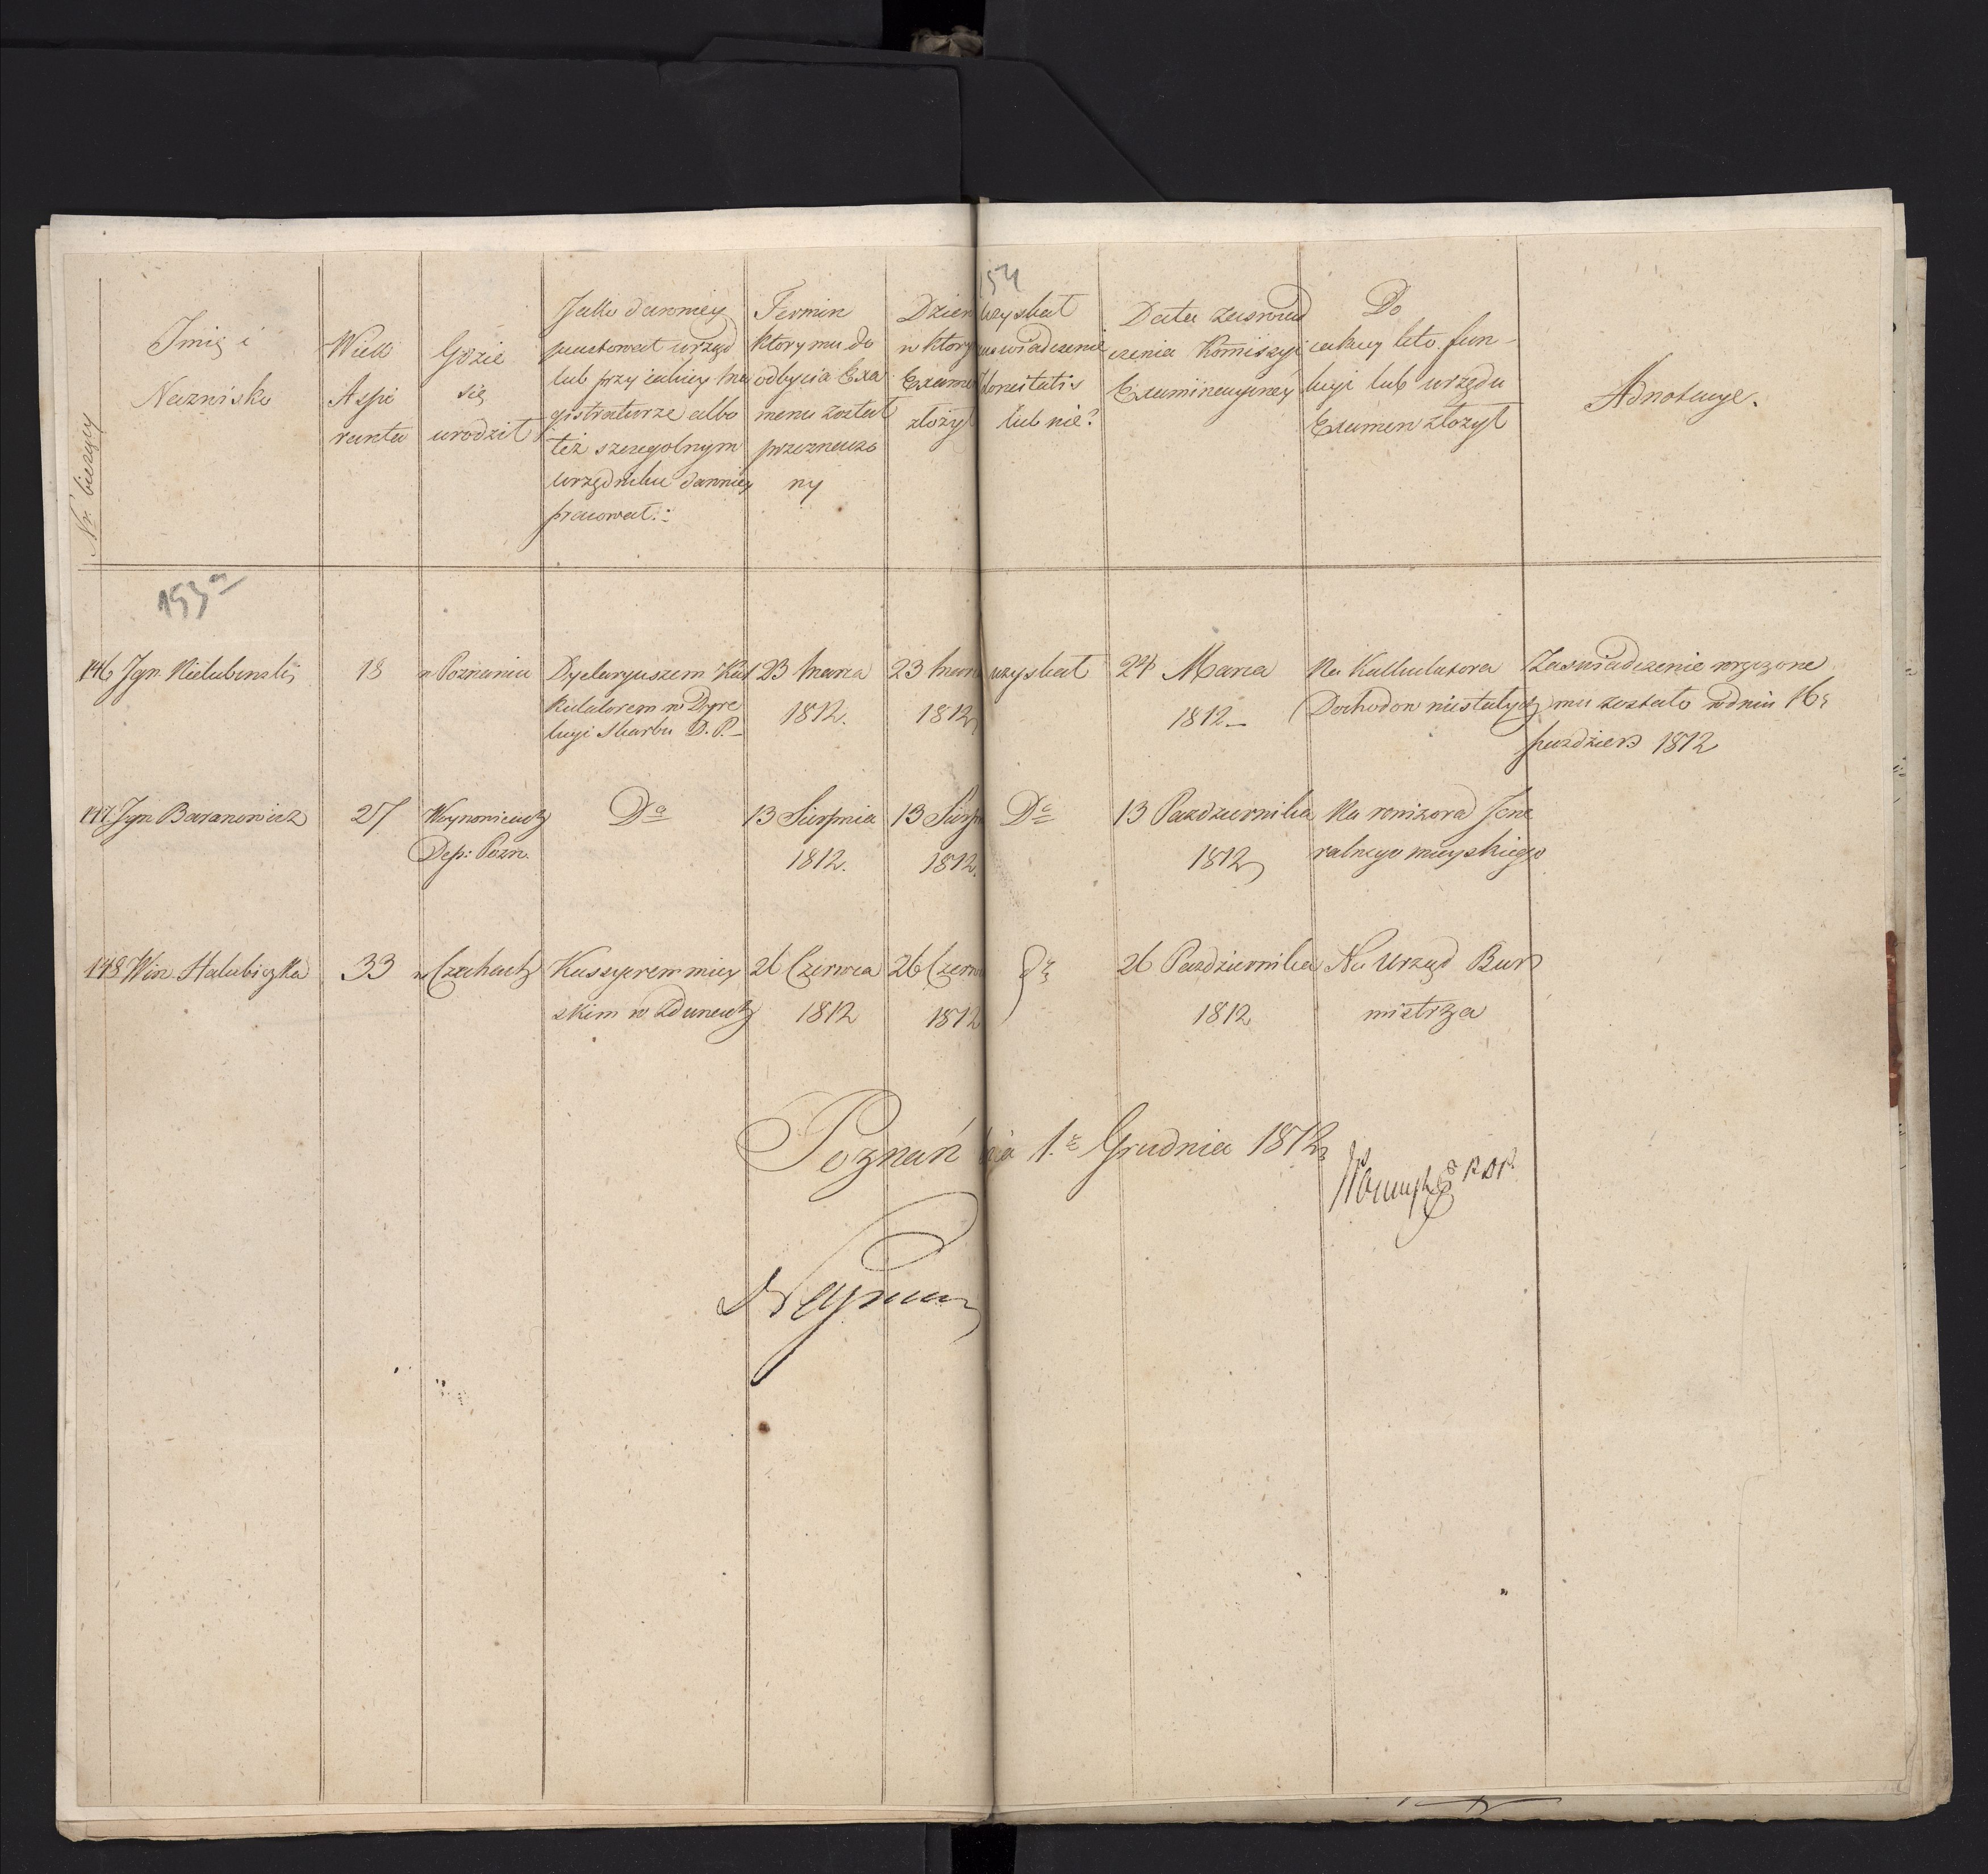 154
Nr. bieżący
Imię i
Nazwisko
Wiek
Aspi
ranta
Gdzie
się
urodził
Jaki dawniey
piastował urząd
lub przy iakiey Ma
gistraturze albo
też szczegolnym
urzędniku dawniey
pracował.
Termin
ktory mu do
odbycia Exa
menu został
przeznaczo
ny
Dzien
w ktory
Examen
złożył
uzyskał
zaswiadczenie
lub nie?
Data zaswiad
czenia Kommissyi
Examinacyiney
Do
iakiey leto fun-
kcyi lub urzędu
Examen złożył
Adnotacye.
153a
146 Jgn.
18
w Poznaniu
Dyetaryuszem Kal
kulatorem w Dyre
kcyi Skarbu D. P.
23 Marca
1812.
23 Marca
1812
uzyskał
24 Marca
1812
Na Kalkulatora
Dochodow niestałych
Zaswiadczenie wręczone
mu zostało w dniu 16
paździer 1812
147 Jgn. Baranowicz
27
Woynowicach
Dep: Pozn.
Do
13 Sierpnia
1812.
13 Sierp
1812.
Do
13 Pazdziernika
1812
Na rewizora Jene
ralnego mieyskiego
148 Win. Halubiczka
33
w Czechach
Kassyerem miey
skim w Zdunach
26 Czerwca
1812
26 Czerw
1812
do
26 Pazdziernika
1812
Na Urząd Bur
mistrza
Poznań dnia 1. Grudnia 1812